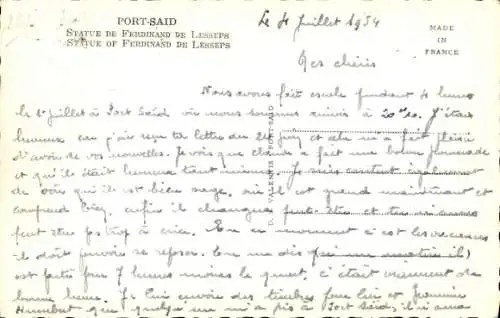 PORT-SAID
STATUE DE FERDINAND DE LESSEPS
STATUE OF FERDINAND DE LESSEPS
MADE
IN
FRANCE
Le 4 Juillet 1954
Mes chéris
Nous avons fait escale pendant 4 heures
le 1er juillet à Port Saïd où nous sommes arrivés à 20h
heureux car j'ai reçu ta lettre du 28 juin et cela m'a fait plaisir
d'avoir de vos nouvelles. Je vois que a fait une bonne promenade
et qu'il était heureux tout même. Je suis content également
de voir qu'il est bien sage, il est grand maintenant et
comprend bien, enfin il changera peut-être et tu
peut être pas trop à crier. En ce moment c'est les vacances
il doit pouvoir se reposer. Tu me dis
est partie pour 7 heures moins le quart, c'était vraiment de
bonne heure. Je lui envoie des timbres pour lui et
Humbert que quelqu'un m'a pris à Port Saïd, il
D. VALENTIN PORT-SAID